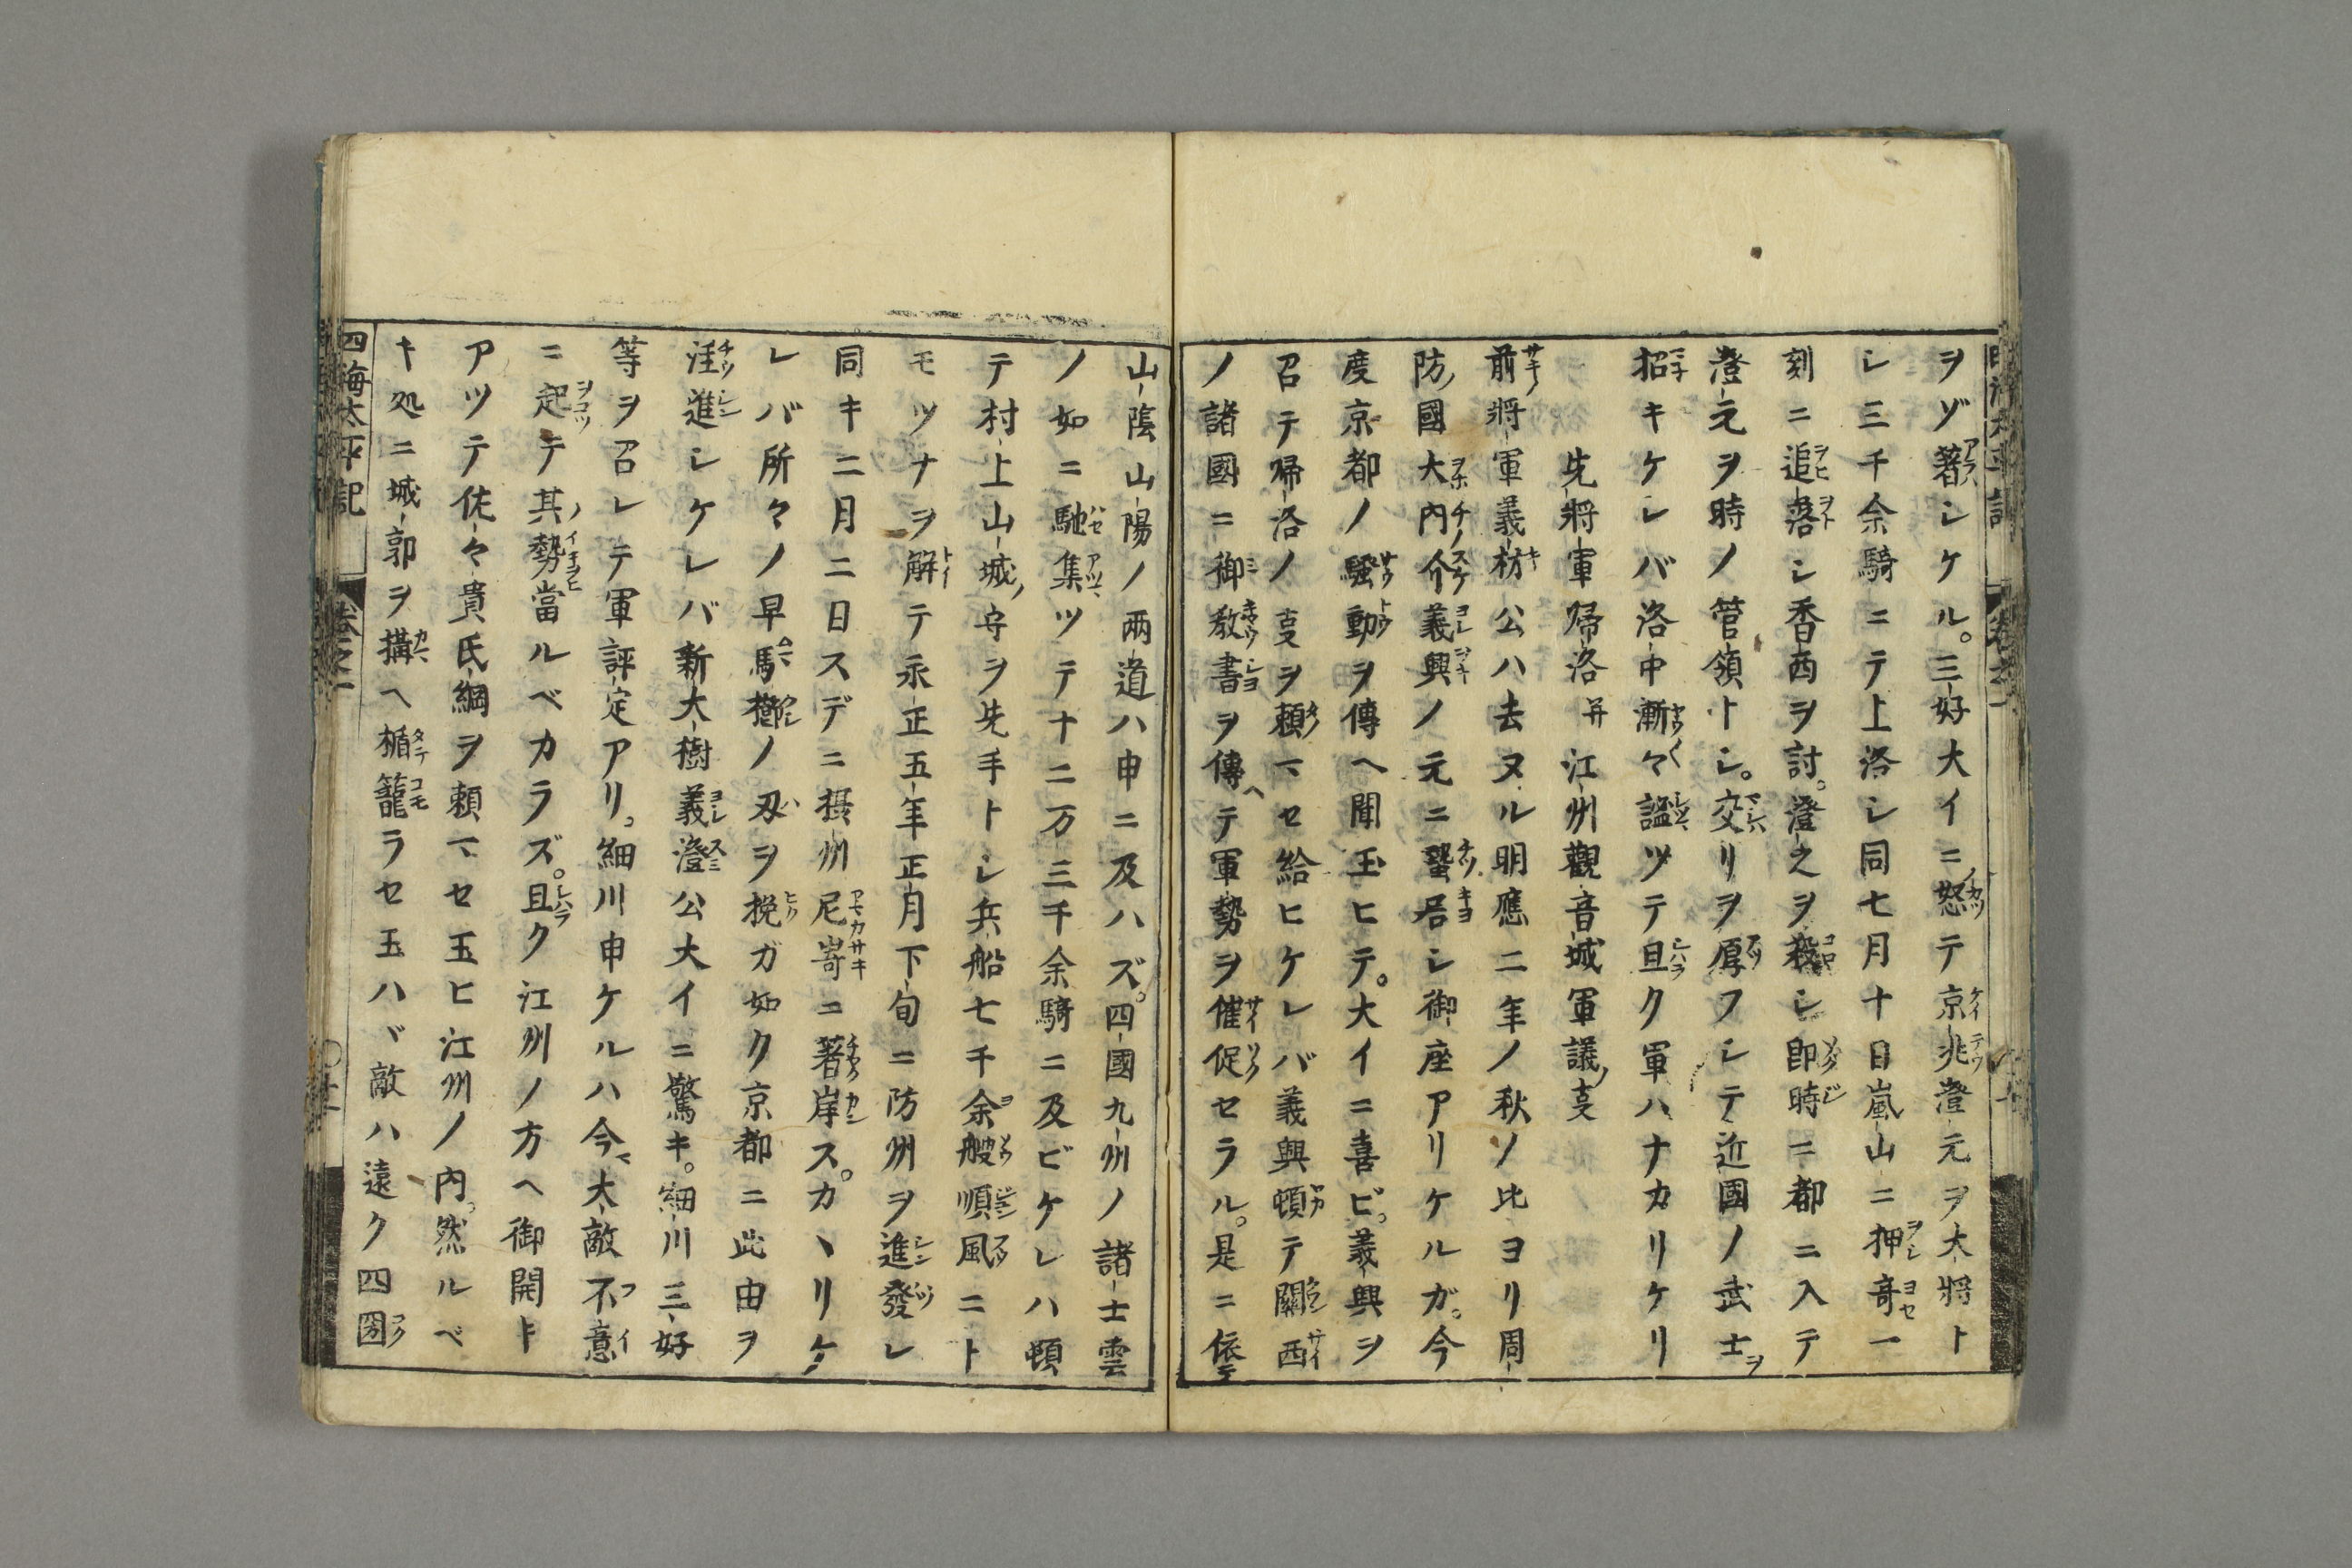 ヲゾ著シケル。三好大イニ怒テ京兆澄元ヲ大將ト
シ三千余騎ニテ上洛シ同七月十日嵐山ニ押寄一
刻ニ追落シ香西ヲ討。澄之ヲ殺シ即時ニ都ニ入テ
澄元ヲ時ノ管領トシ。交リヲ厚フシテ近國ノ武士ヲ
招キケレバ洛中漸々謐ツテ且ク軍ハナカリケリ
先將軍帰洛并江州觀音城軍議ノ亊
前將軍義材公ハ去ヌル明應二年ノ秋ノ比ヨリ周
防ノ國大内介義興ノ元ニ蟄居シ御座アリケルガ。今
度京都ノ騒動ヲ傳ヘ聞玉ヒテ。大イニ喜ビ。義興ヲ
召テ帰洛ノ亊ヲ頼マセ給ヒケレバ義興頓テ關西
ノ諸國ニ御教書ヲ傳ヘテ軍勢ヲ催促セラル。是ニ依テ
山陰山陽ノ兩道ハ申ニ及ハズ。四國九州ノ諸士雲
ノ如ニ馳集ツテ十二万三千余騎ニ及ビケレハ頓
テ村上山城ノ守ヲ先手トシ兵船七千余艘順風ニト
モツナヲ解テ永正五年正月下旬ニ防州ヲ進發シ
同キ二月二日スデニ摂州尼嵜ニ著岸ス。カヽリケ
レバ所々ノ早馬櫓ノ刄ヲ挽ガ如ク京都ニ此由ヲ
注進シケレバ新大樹義澄公大イニ驚キ。細川三好
等ヲ召シテ軍評定アリ。細川申ケルハ今マ大敵不意
ニ起テ其ノ勢當ルベカラズ。且ク江州ノ方ヘ御開キ
アツテ佐々貴氏綱ヲ頼マセ玉ヒ江州ノ内。然ルベ
キ処ニ城郭ヲ搆ヘ楯籠ラセ玉ハヾ敵ハ遠ク四國
四海太平記 卷之一